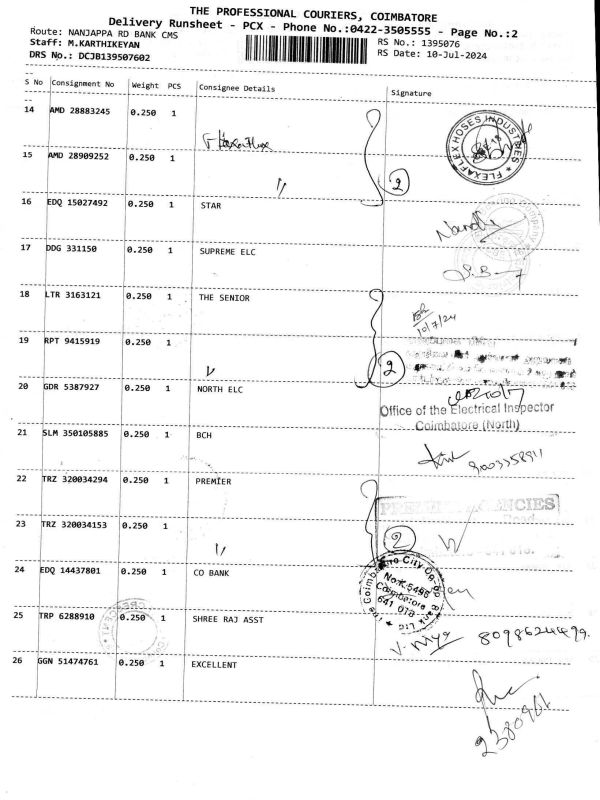 THE PROFESSIONAL COURIERS, COIMBATORE
Delivery Runsheet - PCX - Phone No.:0422-3505555 - Page No.:2
Route: NANJAPPA RD BANK CMS
Staff: M.KARTHIKEYAN
DRS No.: DCJB139507602
RS No.: 1395076
RS Date: 10-Jul-2024
S No Consignment No Weight PCS Consignee Details Signature
14 AMD 28883245 0.250 1
FLEXAFLEX HOSES INDUSTRIES
15 AMD 28909252 0.250 1 "
2
16 EDQ 15027492 0.250 1 STAR
17 DDG 331150 0.250 1 SUPREME ELC
18 LTR 3163121 0.250 1 THE SENIOR
10/7/24
19 RPT 9415919 0.250 1
2
20 GDR 5387927 0.250 1 NORTH ELC
Office of the Electrical Inspector
Coimbatore (North)
21 SLM 350105885 0.250 1 BCH
9003358911
22 TRZ 320034294 0.250 1 PREMIER
23 TRZ 320034153 0.250 1 "
2
24 EDQ 14437801 0.250 1 CO BANK
The Coimbatore City Co-op Bank Ltd
No.K.5496
Coimbatore
641 018
25 TRP 6288910 0.250 1 SHREE RAJ ASST
8098624499.
26 GGN 51474761 0.250 1 EXCELLENT
2380961